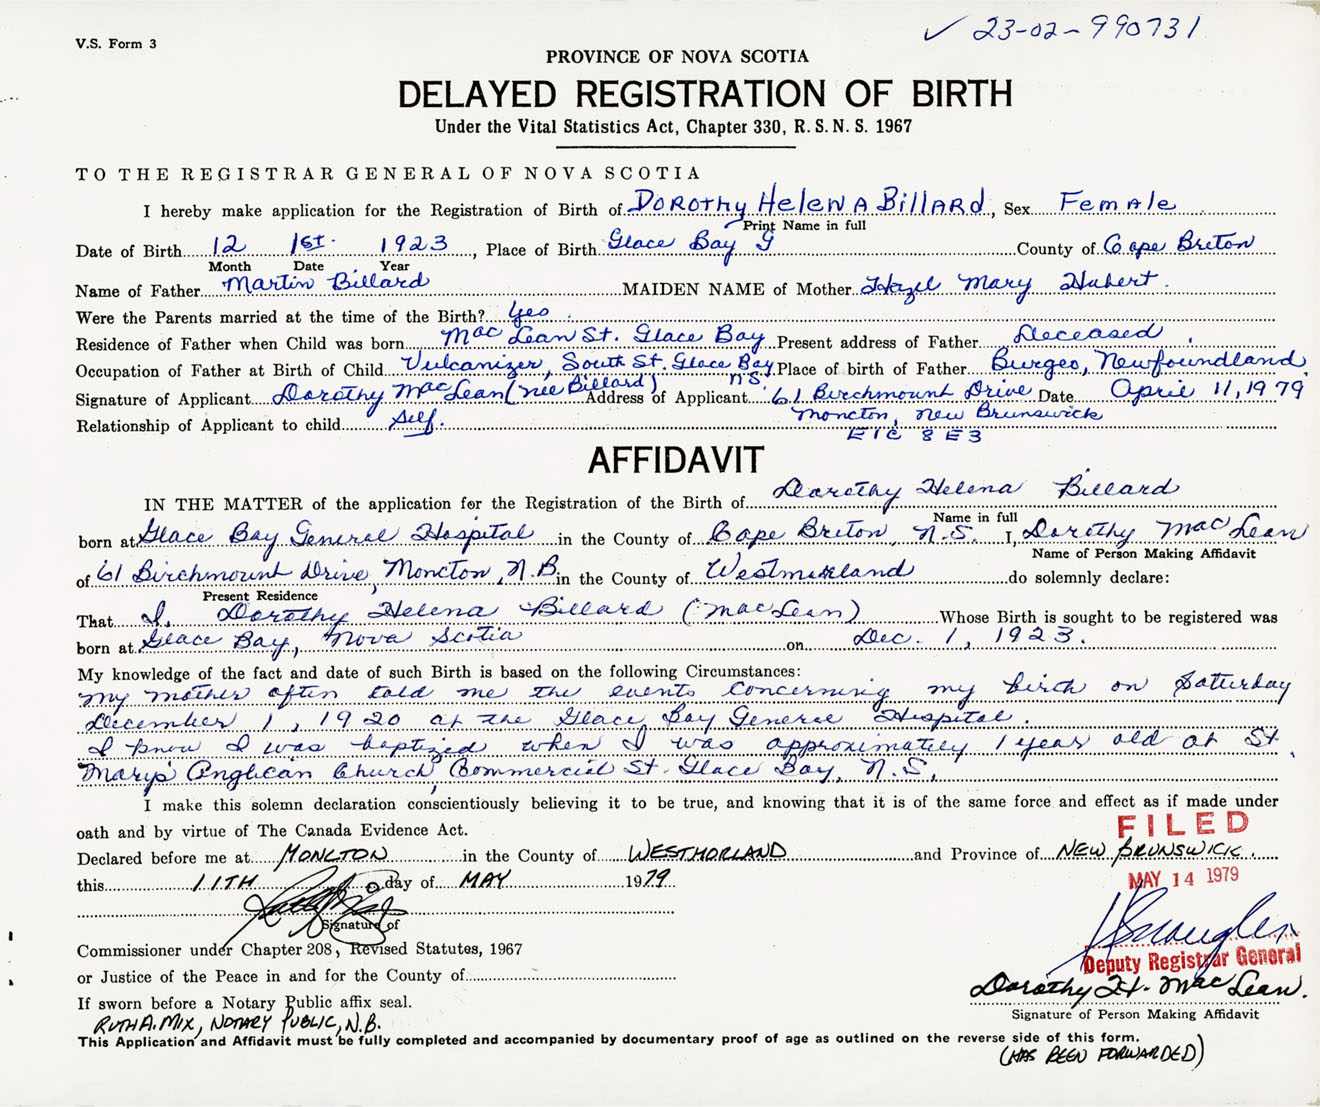 ✓ 23-02-990731
V.S. Form 3
PROVINCE OF NOVA SCOTIA
DELAYED REGISTRATION OF BIRTH
Under the Vital Statistics Act, Chapter 330, R. S. N. S. 1967
TO THE REGISTRAR GENERAL OF NOVA SCOTIA
I hereby make application for the Registration of Birth of Dorothy Helena Billard, Sex Female
Print Name in full
Date of Birth 12 1st. 1923, Place of Birth Glace Bay County of Cape Breton
Month Date Year
Name of Father Martin Billard MAIDEN NAME of Mother Hazel Mary Hubert.
Were the Parents married at the time of the Birth? Yes.
Residence of Father when Child was born MacLean St. Glace Bay Present address of Father Deceased.
Occupation of Father at Birth of Child Vulcanizer, South St. Glace Bay N.S. Place of birth of Father Burgeo, Newfoundland
Signature of Applicant Dorothy MacLean (nee Billard) Address of Applicant 61 Birchmount Drive Date April 11, 1979
Moncton, New Brunswick
Relationship of Applicant to child Self.
E1C 8E3
AFFIDAVIT
IN THE MATTER of the application for the Registration of the Birth of Dorothy Helena Billard
Name in full
born at Glace Bay General Hospital in the County of Cape Breton, N.S. I, Dorothy MacLean
Name of Person Making Affidavit
of 61 Birchmount Drive, Moncton, N.B. in the County of Westmorland do solemnly declare:
Present Residence
That I, Dorothy Helena Billard (MacLean) Whose Birth is sought to be registered was
born at Glace Bay, Nova Scotia on Dec. 1, 1923.
My knowledge of the fact and date of such Birth is based on the following Circumstances:
My mother often told me the events concerning my birth on Saturday
December 1, 1920 at the Glace Bay General Hospital.
I know I was baptized when I was approximately 1 year old at St.
Mary's Anglican Church, Commercial St. Glace Bay, N.S.
I make this solemn declaration conscientiously believing it to be true, and knowing that it is of the same force and effect as if made under
oath and by virtue of The Canada Evidence Act.
FILED
Declared before me at MONCTON in the County of WESTMORLAND and Province of NEW BRUNSWICK.
this 11TH day of MAY 1979
MAY 14 1979
Signature of
Commissioner under Chapter 208, Revised Statutes, 1967
Deputy Registrar General
or Justice of the Peace in and for the County of
Dorothy H. MacLean.
If sworn before a Notary Public affix seal.
Signature of Person Making Affidavit
RUTH A. MIX, NOTARY PUBLIC, N.B.
This Application and Affidavit must be fully completed and accompanied by documentary proof of age as outlined on the reverse side of this form.
(HAS BEEN FORWARDED)